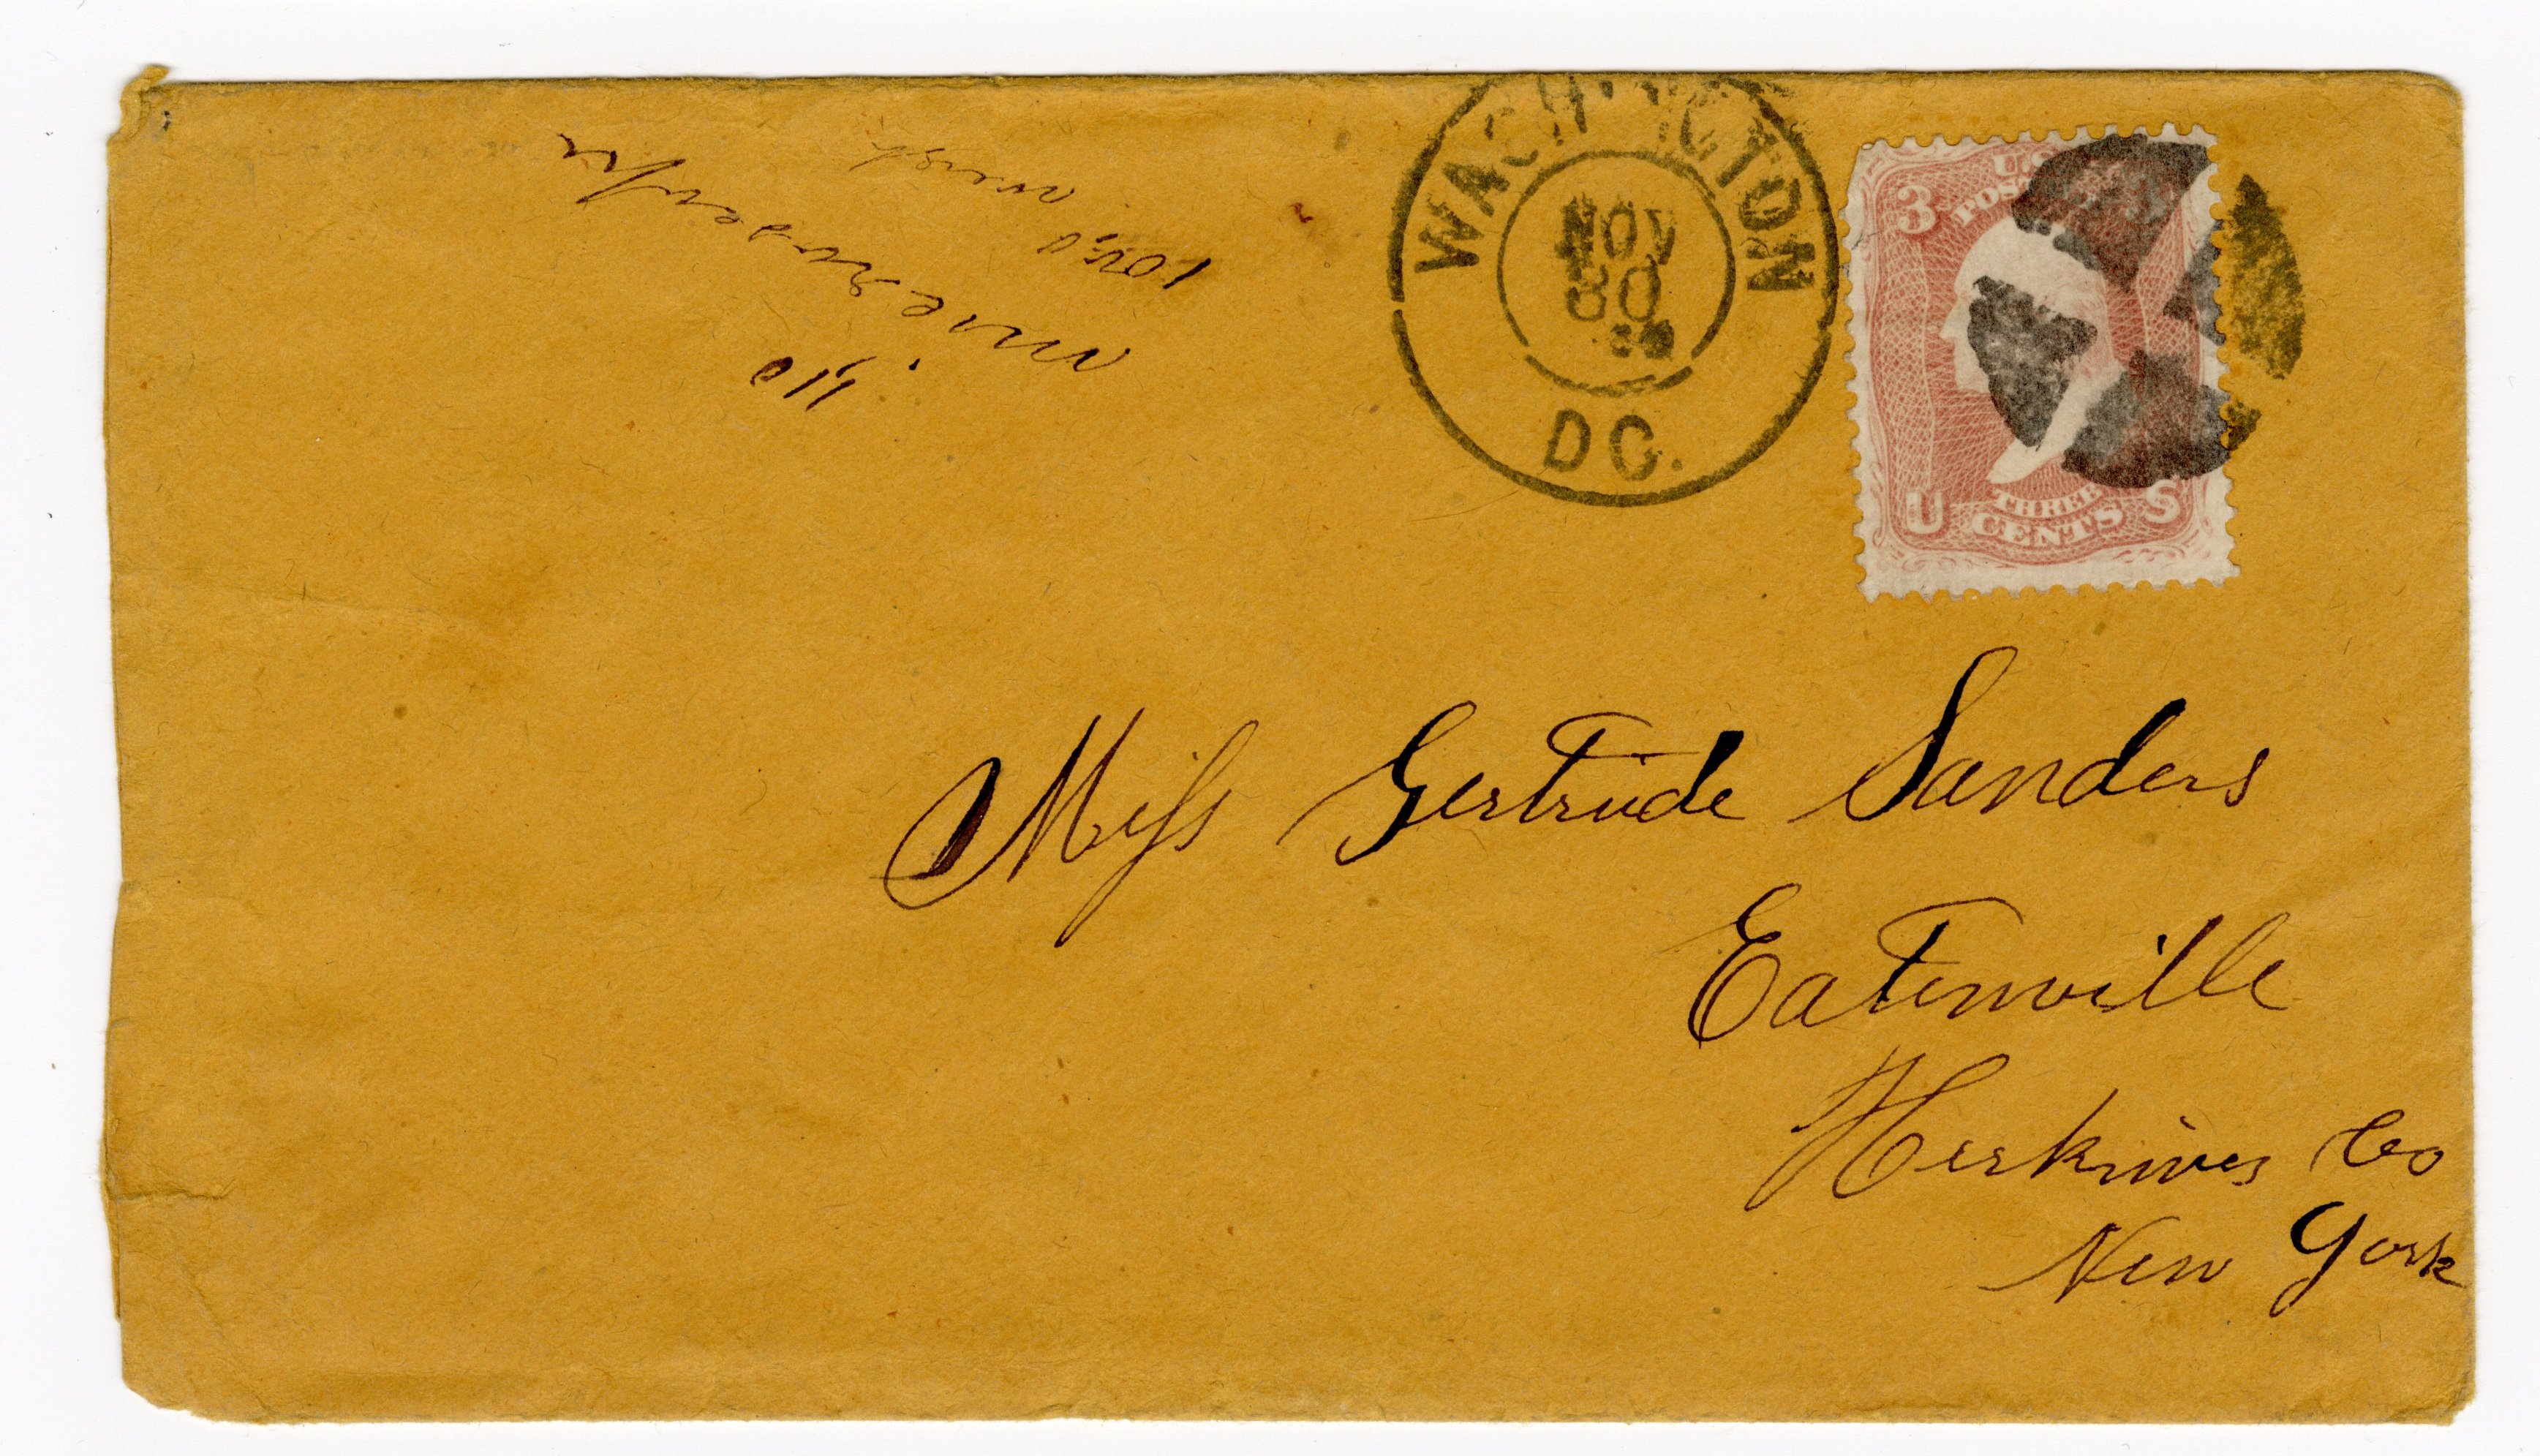 WASHINGTON
NOV
30
D C.
3
U.S.
POSTAGE
U THREE S
CENTS
Miss Gertrude Sanders
Eatonville
Herkimer Co
New York